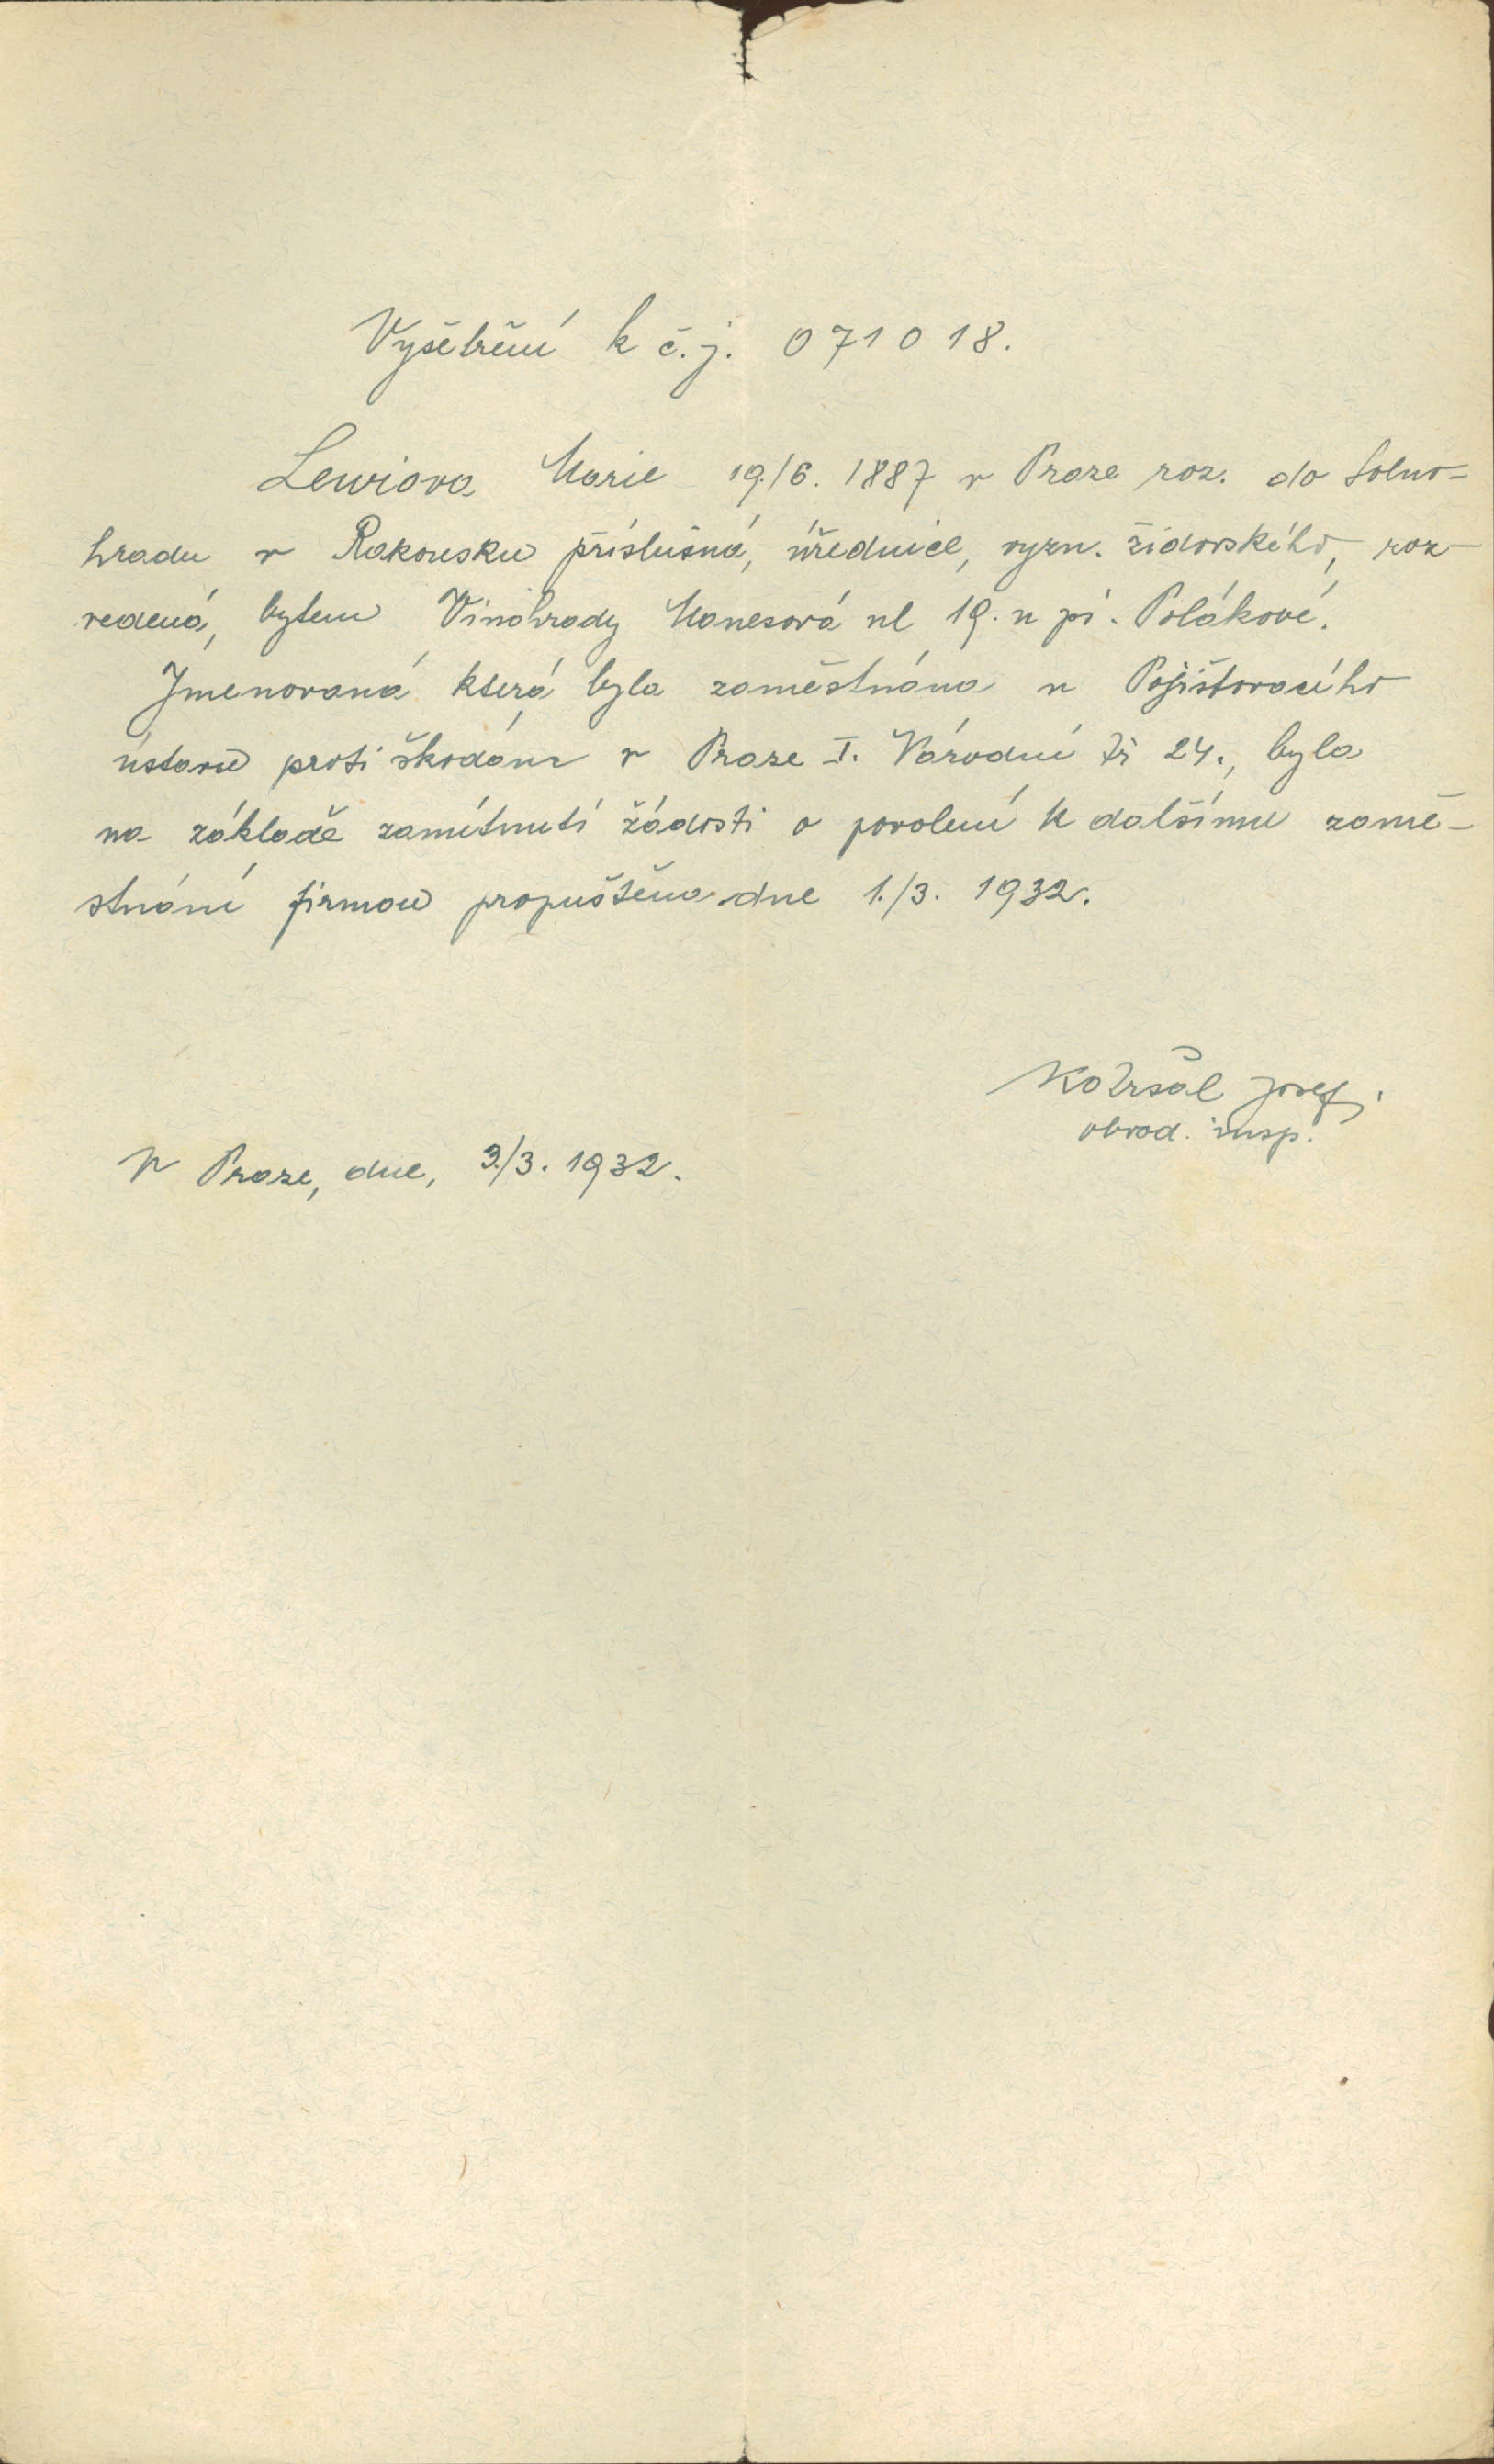 Vyšetření k č.j. 071018.
Lewiova Marie 19./6. 1887 v Praze roz. do Solno-
hradu v Rakousku příslušná, úřednice, vyzn. židovského, roz-
vedená, bytem Vinohrady Manesová ul 19. u pí. Polákové.
Jmenovaná která byla zaměstnána u Pojišťovacího
ústavu proti škodám v Praze I. Národní tř 24., byla
na základě zamítnutí žádosti o povolení k dalšímu zamě-
stnání firmou propuštěna dne 1./3. 1932.
Josef.
obvod. insp.
V Praze, dne, 3./3. 1932.